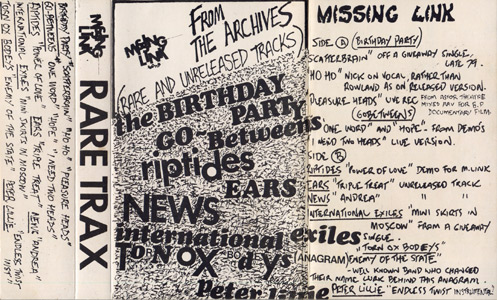 BIRTHDAY PARTY "SCATTERBRAIN" "HO HO" "PLEASURE HEADS"
GO-BETWEENS "ONE WORD" "HOPE" "I NEED TWO HEADS"
RIPTIDES "POWER OF LOVE" EARS "TRIPLE TREAT" NEWS "ANDREA"
INTERNATIONAL EXILES "MINI SKIRTS IN MOSCOW" "ENDLESS TWIST
TORN OX BODEYS "ENEMY OF THE STATE" PETER LILLIE INST"
MISSING LINK
RARE TRAX
MISSING LINK
FROM THE ARCHIVES
(RARE AND UNRELEASED TRACKS)
the BIRTHDAY
PARTY
GO-Betweens
riptides
EARS
NEWS
international exiles
TORN OX BOdys
Peter Lillie
MISSING LINK
SIDE A (BIRTHDAY PARTY)
SCATTERBRAIN" OFF A GIVEAWAY SINGLE,
LATE 79.
"HO HO" NICK ON VOCAL, RATHER THAN
ROWLAND AS ON RELEASED VERSION.
PLEASURE HEADS" LIVE REC
MIXES FOR E.P
DOCUMENTARY FILM.
(GOBETWEENS)
"ONE WORD" AND "HOPE" - FROM DEMO'S
I NEED TWO HEADS" LIVE VERSION.
SIDE B
RIPTIDES "POWER OF LOVE" DEMO FOR M.LINK
EARS "TRIPLE TREAT" UNRELEASED TRACK
NEWS "ANDREA" " "
INTERNATIONAL EXILES "MINI SKIRTS IN
MOSCOW" FROM A GIVEAWAY
SINGLE.
"TORN OX BODEYS"
(ANAGRAM) ENEMY OF THE STATE"
- WELL KNOWN BAND WHO CHANGED
THEIR NAME LURK BEHIND THIS ANAGRAM.
PETER LILLIE "ENDLESS TWIST INSTRUMENTAL"